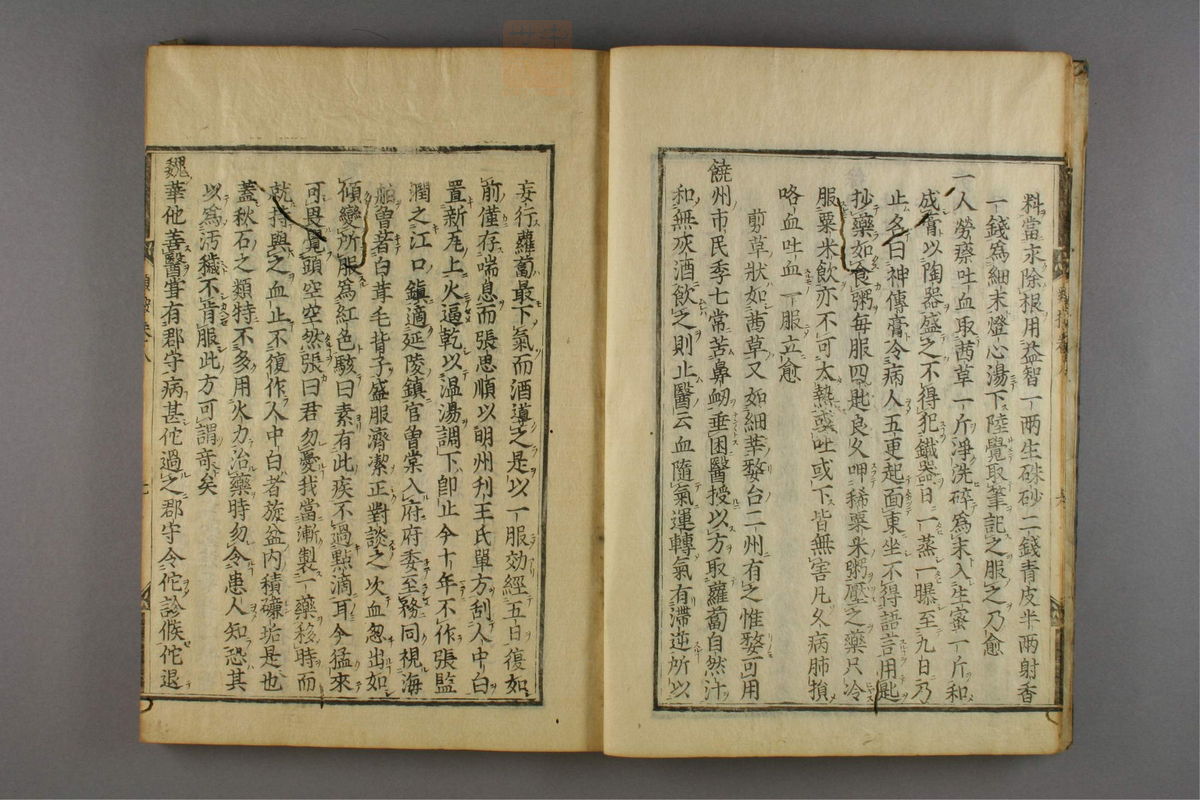 料當求除根用益智一兩生硃砂二錢青皮半兩射香
一錢爲細末燈心湯下陸覺取筆記之服之乃愈
一人勞瘵吐血取茜草一斤淨洗碎爲末入生蜜一斤和
成膏以陶器盛之不得犯鐵器日一蒸一曝至九日乃
止名曰神傳膏令病人五更起面東坐不得語言用匙
抄藥如食粥每服四匙良久呷稀粟米粥壓之藥只冷
服粟米飲亦不可太熱或吐或下皆無害凡久病肺損
咯血吐血一服立愈
剪草狀如茜草又如細莘婺台二州有之惟婺可用
饒州市民李七常苦鼻衂垂困醫授以方取蘿蔔自然汁
和無灰酒飲之則止醫云血隨氣運轉氣有滯逆所以
妄行蘿蔔最下氣而酒導之是以一服効經五日復如
前僅存喘息而張思順以明州刊王氏單方刮人中白
置新瓦上火逼乾以温湯調下卽止今十年不作張監
潤之江口鎭適延陵鎭官曾棠入府府委至務同視海
舶曾著白茸毛背子盛服濟潔正對談之次血忽出如
傾變所服爲紅色駭曰素有此疾不過點滴耳今猛來
可畏覺頭空空然張曰君勿憂我當漸製一藥移時而
就持與之血止不復作人中白者旋盆内積𥕢垢是也
蓋秋石之類特不多用火力治藥時勿令患人知恐其
以爲汚穢不肯服此方可謂奇矣
魏華佗善醫甞有郡守病甚佗過之郡守令佗診候佗退